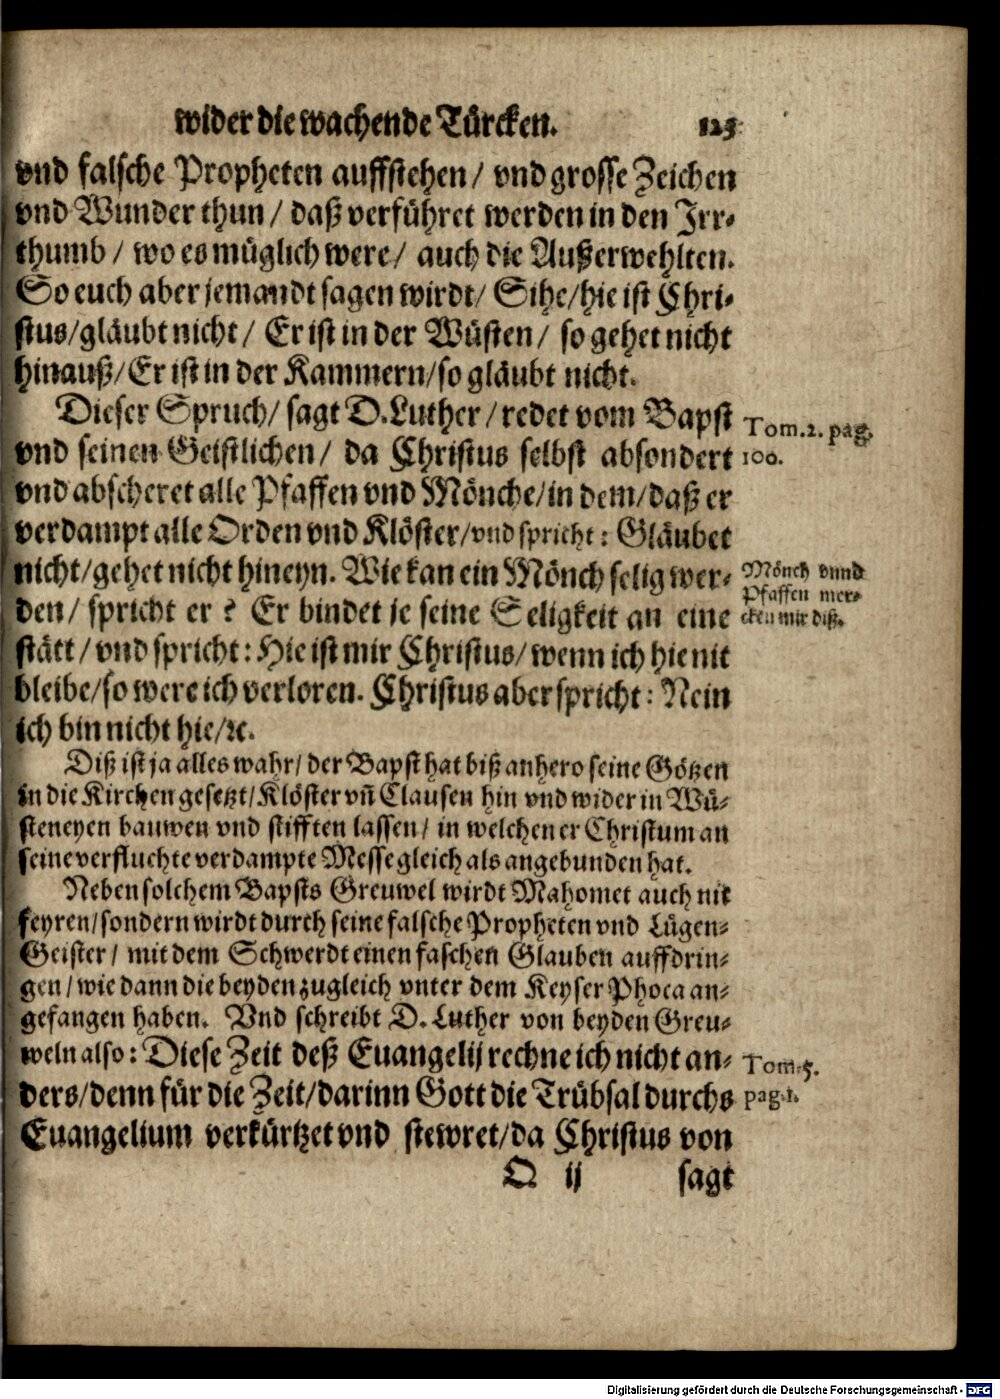 wider die wachende Türcken. 123
vnd falsche Propheten auffstehen / vnd grosse Zeichen
vnd Wunder thun / daß verführet werden in den Irr-
thumb / wo es müglich were / auch die Außerwehlten.
So euch aber jemandt sagen wirdt / Sihe / hie ist Chri-
stus / gläubt nicht / Er ist in der Wüsten / so gehet nicht
hinauß / Er ist in der Kammern / so gläubt nicht.
Dieser Spruch / sagt D. Luther / redet vom Bapst
Tom. 2. pag.
vnd seinen Geistlichen / da Christus selbst absondert
100.
vnd abscheret alle Pfaffen vnd Mönche / in dem / daß er
verdampt alle Orden vnd Klöster / vnd spricht : Gläubet
nicht / gehet nicht hineyn. Wie kan ein Mönch selig wer-
Mönch vnnd
den / spricht er ? Er bindet je seine Seligkeit an eine
Pfaffen mer-
cken mir diß.
stätt / vnd spricht : Hie ist mir Christus / wenn ich hie nit
bleibe / so were ich verloren. Christus aber spricht : Nein
ich bin nicht hie / ꝛc.
Diß ist ja alles wahr / der Bapst hat biß anhero seine Götzen
in die Kirchen gesetzt / Klöster vñ Clausen hin vnd wider in Wü-
steneyen bauwen vnd stifften lassen / in welchen er Christum an
seine verfluchte verdampte Messe gleich als angebunden hat.
Neben solchem Bapsts Greuwel wirdt Mahomet auch nit
feyren / sondern wirdt durch seine falsche Propheten vnd Lügen-
Geister / mit dem Schwerdt einen faschen Glauben auffdrin-
gen / wie dann die beyden zugleich vnter dem Keyser Phoca an-
gefangen haben. Vnd schreibt D. Luther von beyden Greu-
weln also : Diese Zeit deß Euangelij rechne ich nicht an-
Tom. 5.
ders / denn für die Zeit / darinn Gott die Trübsal durchs
pag. 1.
Euangelium verkürtzet vnd stewret / da Christus von
Q ij sagt
Digitalisierung gefördert durch die Deutsche Forschungsgemeinschaft - DFG